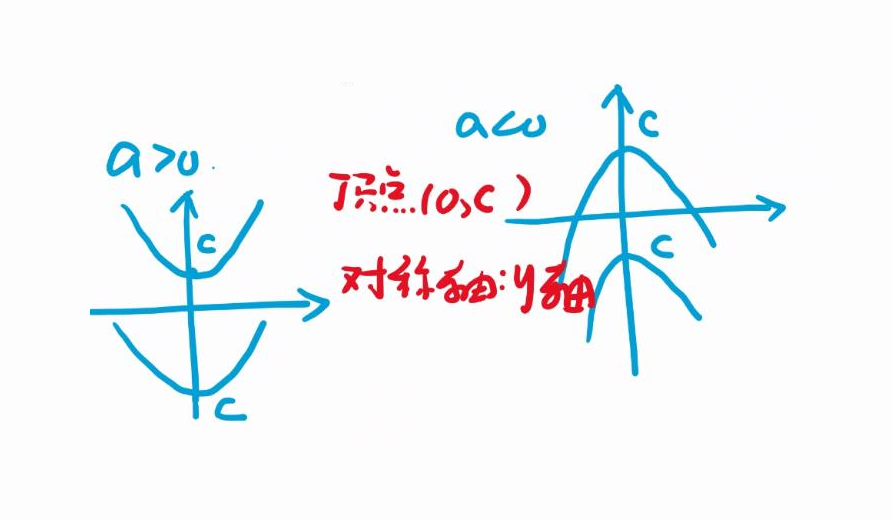 a>0
c
c
顶点(0,c)
对称轴:y轴
a<0
c
c